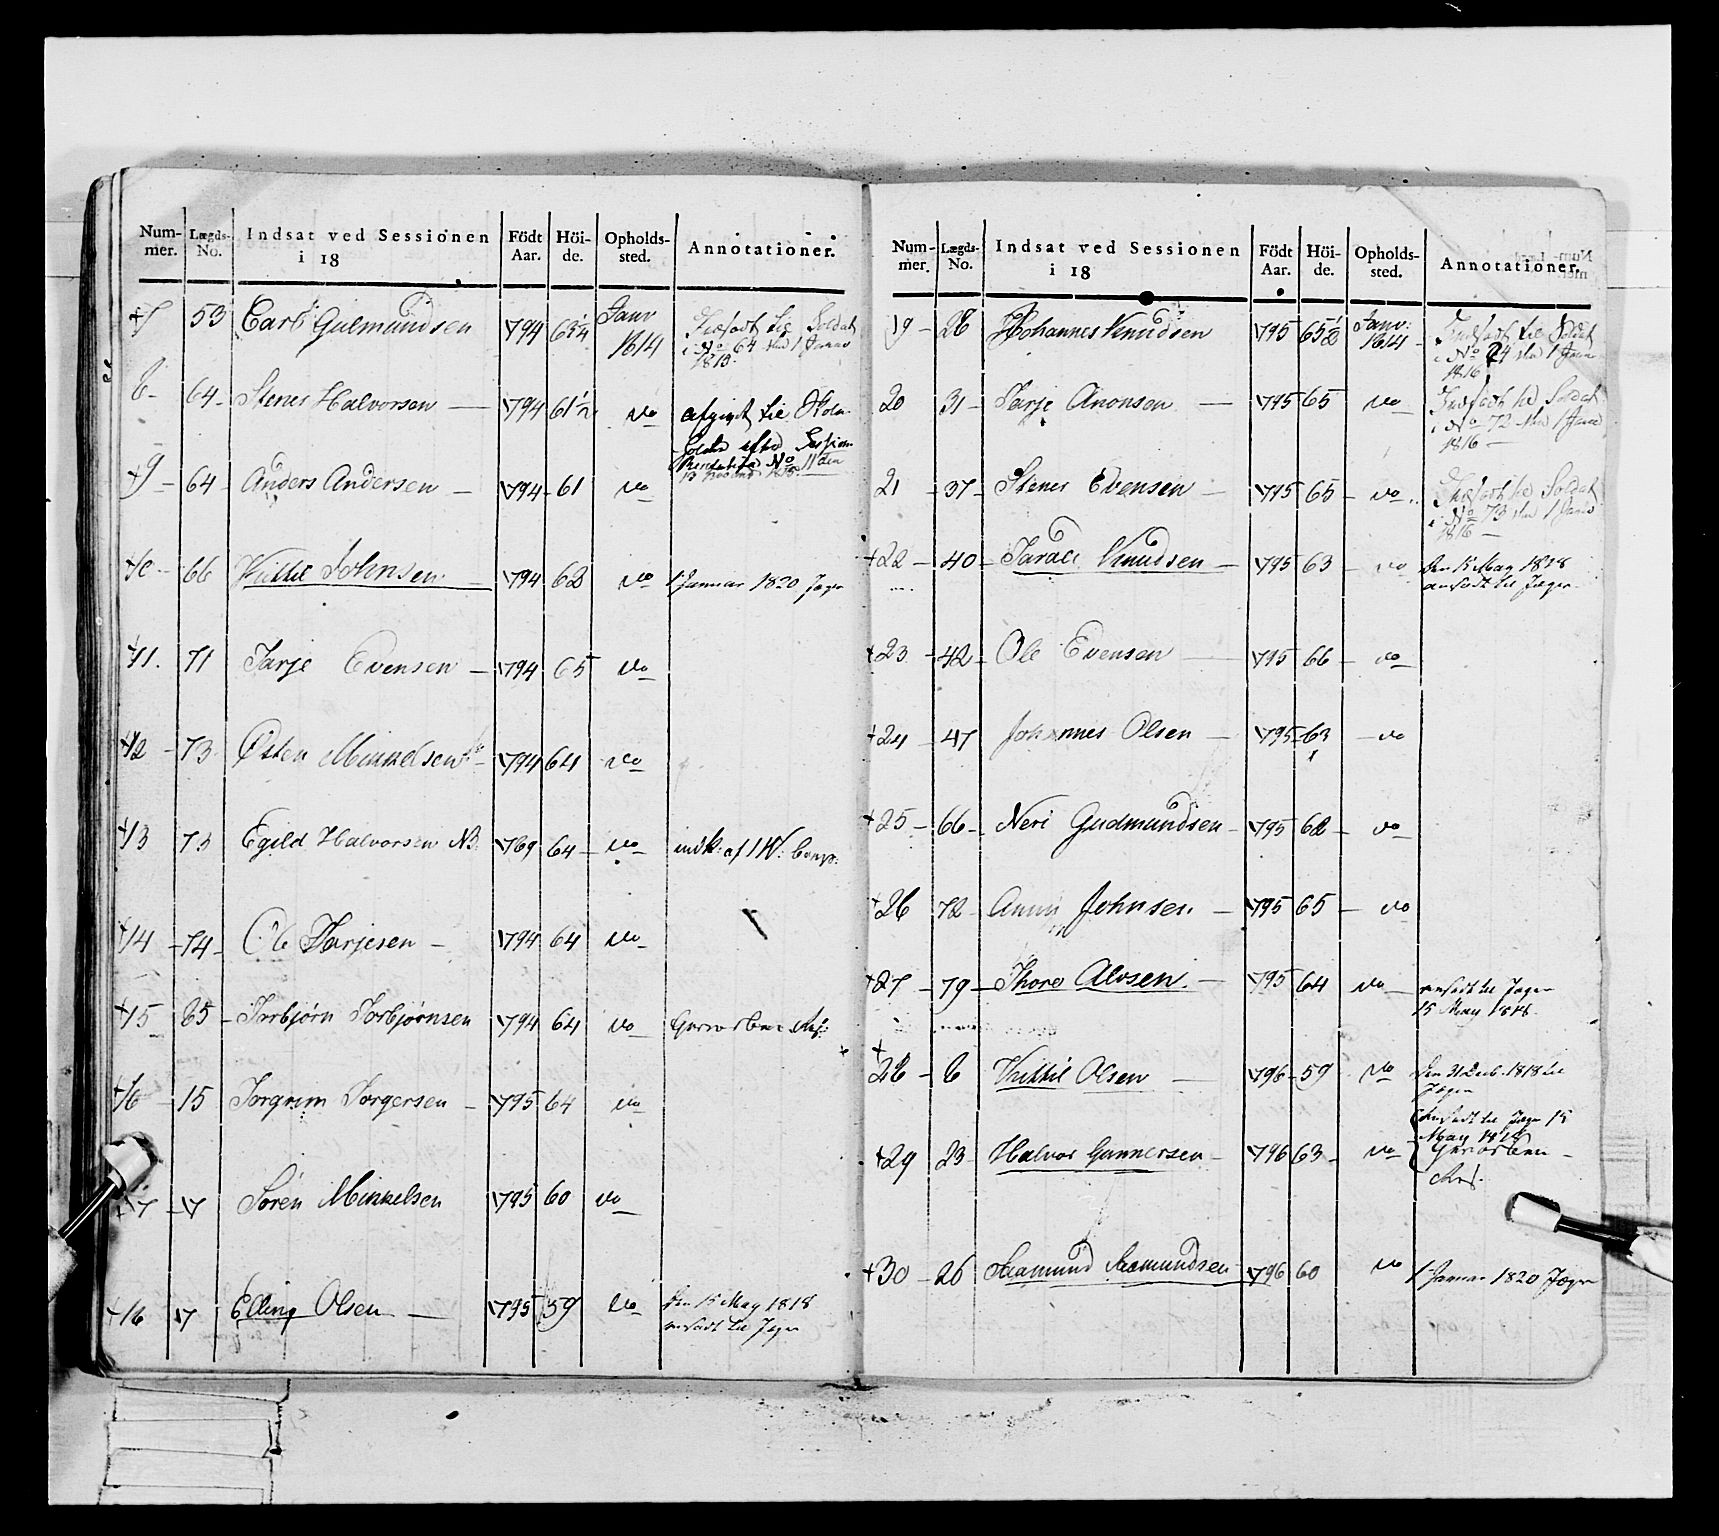 Num-mer. Lægds-No. Indsat ved Sessionen i 18 Födt Aar. Höi-de. Opholds-sted. Annotationer.
7 53 Carl Gulmundsen 1794 63 1/4 Janv 1814 Indsadt til Soldat
i No 64 den 1 Janv
1815.
8 64 Stener Halvorsen 1794 61 1/2 do afgivet til
Session
No 11 den
9 64 Anders Andersen 1794 61 do
10 66 Kittil Johnsen 1794 62 do 1 Januar 1820 Jæger
11. 71 Tarje Evensen 1794 65 do
12 73 Østen Mikkelsen 1794 64 do
13 73 Egild Halvorsen NB. 1769 64 do indk: af Comp:
14 74 Ole Tarjesen 1794 64 do
15 85 Torbjørn Torbjørnsen 1794 64 do Gevorben
16 15 Torgrim Torgersen 1795 64 do
17 17 Søren Mikkelsen 1795 60 do
18 17 Elling Olsen 1795 59 do Den 15 May 1818
ansadt til Jæger
Num-mer. Lægds-No. Indsat ved Sessionen i 18 Födt Aar. Höi-de. Opholds-sted. Annotationer.
19 28 Johannes Knudsen 1795 65 1/2 Janv: 1814 Indsadt til Soldat
i No 24 den 1 Janv
1816
20 31 Tarje Anonsen 1795 65 do Indsadt til Soldat
i No 72 den 1 Janv
1816
21 37 Stener Evensen 1795 65 do Indsadt til Soldat
i No 73 den 1 Janv
1816
22 40 Tarald Knudsen 1795 63 do Den 15 May 1818
ansadt til Jæger
23 42 Ole Evensen 1795 66 do
24 47 Johannes Olsen 1795 63 do
25 66 Neri Gudmundsen 1795 62 do
26 72 Johnsen 1795 65 do
27 79 Thore Alvsen 1795 64 do ansadt til Jæger
15 May 1818.
28 6 Kittil Olsen 1796 59 do Den 31 Decb. 1818 til
Jæger
29 23 Halvor Gunnersen 1796 63 do Ansadt til Jæger 15
May 1818
Gevorben
30 26 Aamund Aamundsen 1796 60 do 1 Januar 1820 Jæger